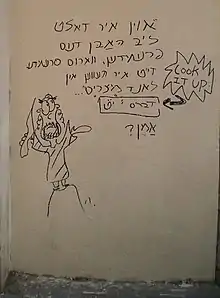 און איר זאלט
ליב האבן דעם
פרעמדען, ווארום פרעמדע
זייט איר געווען אין
לאנד מצרים...
דברים י', יט
אמן?
COOK
IT
UP